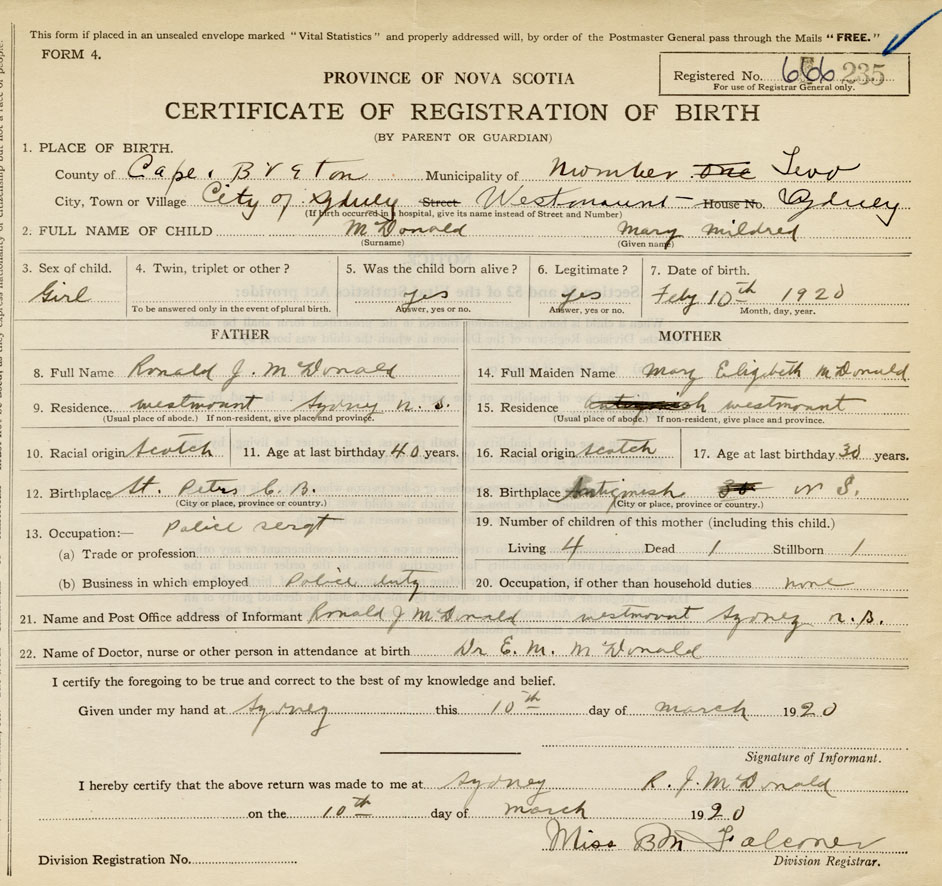 This form if placed in an unsealed envelope marked "Vital Statistics" and properly addressed will, by order of the Postmaster General pass through the Mails "FREE."
FORM 4.
PROVINCE OF NOVA SCOTIA
Registered No. 666 235
For use of Registrar General only.
CERTIFICATE OF REGISTRATION OF BIRTH
(BY PARENT OR GUARDIAN)
1. PLACE OF BIRTH.
County of Cape. Breton Municipality of Number One Two
City, Town or Village City of Sydney Street Westmount House No. Sydney
(If birth occurred in a hospital, give its name instead of Street and Number)
2. FULL NAME OF CHILD McDonald Mary Mildred
(Surname) (Given name)
3. Sex of child. 4. Twin, triplet or other? 5. Was the child born alive? 6. Legitimate? 7. Date of birth.
Girl yes yes Feby 10th 1920
To be answered only in the event of plural birth. Answer, yes or no. Answer, yes or no. Month, day, year.
FATHER MOTHER
8. Full Name Ronald J. McDonald 14. Full Maiden Name Mary Elizibeth McDonald
9. Residence. westmount Sydney n. S. 15. Residence Antigonish westmount
(Usual place of abode.) If non-resident, give place and province. (Usual place of abode.) If non-resident, give place and province.
10. Racial origin Scotch 11. Age at last birthday 40 years. 16. Racial origin Scotch 17. Age at last birthday 30 years.
12. Birthplace St. Peters C. B. 18. Birthplace Antigonish 30 N S.
(City or place, province or country.) (City or place, province or country.)
13. Occupation:— Police sergt 19. Number of children of this mother (including this child.)
(a) Trade or profession Living 4 Dead 1 Stillborn 1
(b) Business in which employed Police duty 20. Occupation, if other than household duties none
21. Name and Post Office address of Informant Ronald J McDonald westmount Sydney n. S.
22. Name of Doctor, nurse or other person in attendance at birth Dr E. M. McDonald
I certify the foregoing to be true and correct to the best of my knowledge and belief.
Given under my hand at Sydney this 10th day of march 1920
Signature of Informant.
I hereby certify that the above return was made to me at Sydney R. J. McDonald
on the 10th day of march 1920
Miss BM Falconer
Division Registration No. Division Registrar.